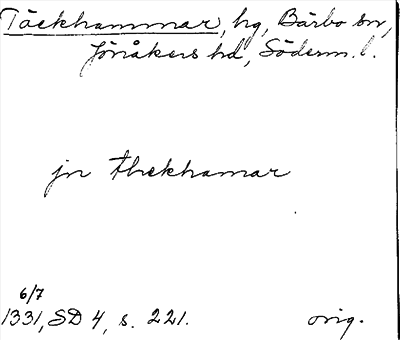 Täckhammar, hg, Bärbo sn,
Jönåkers hd, Söderm. l.
jn thekhamar
6/7
1331, SD 4, s. 221. orig.